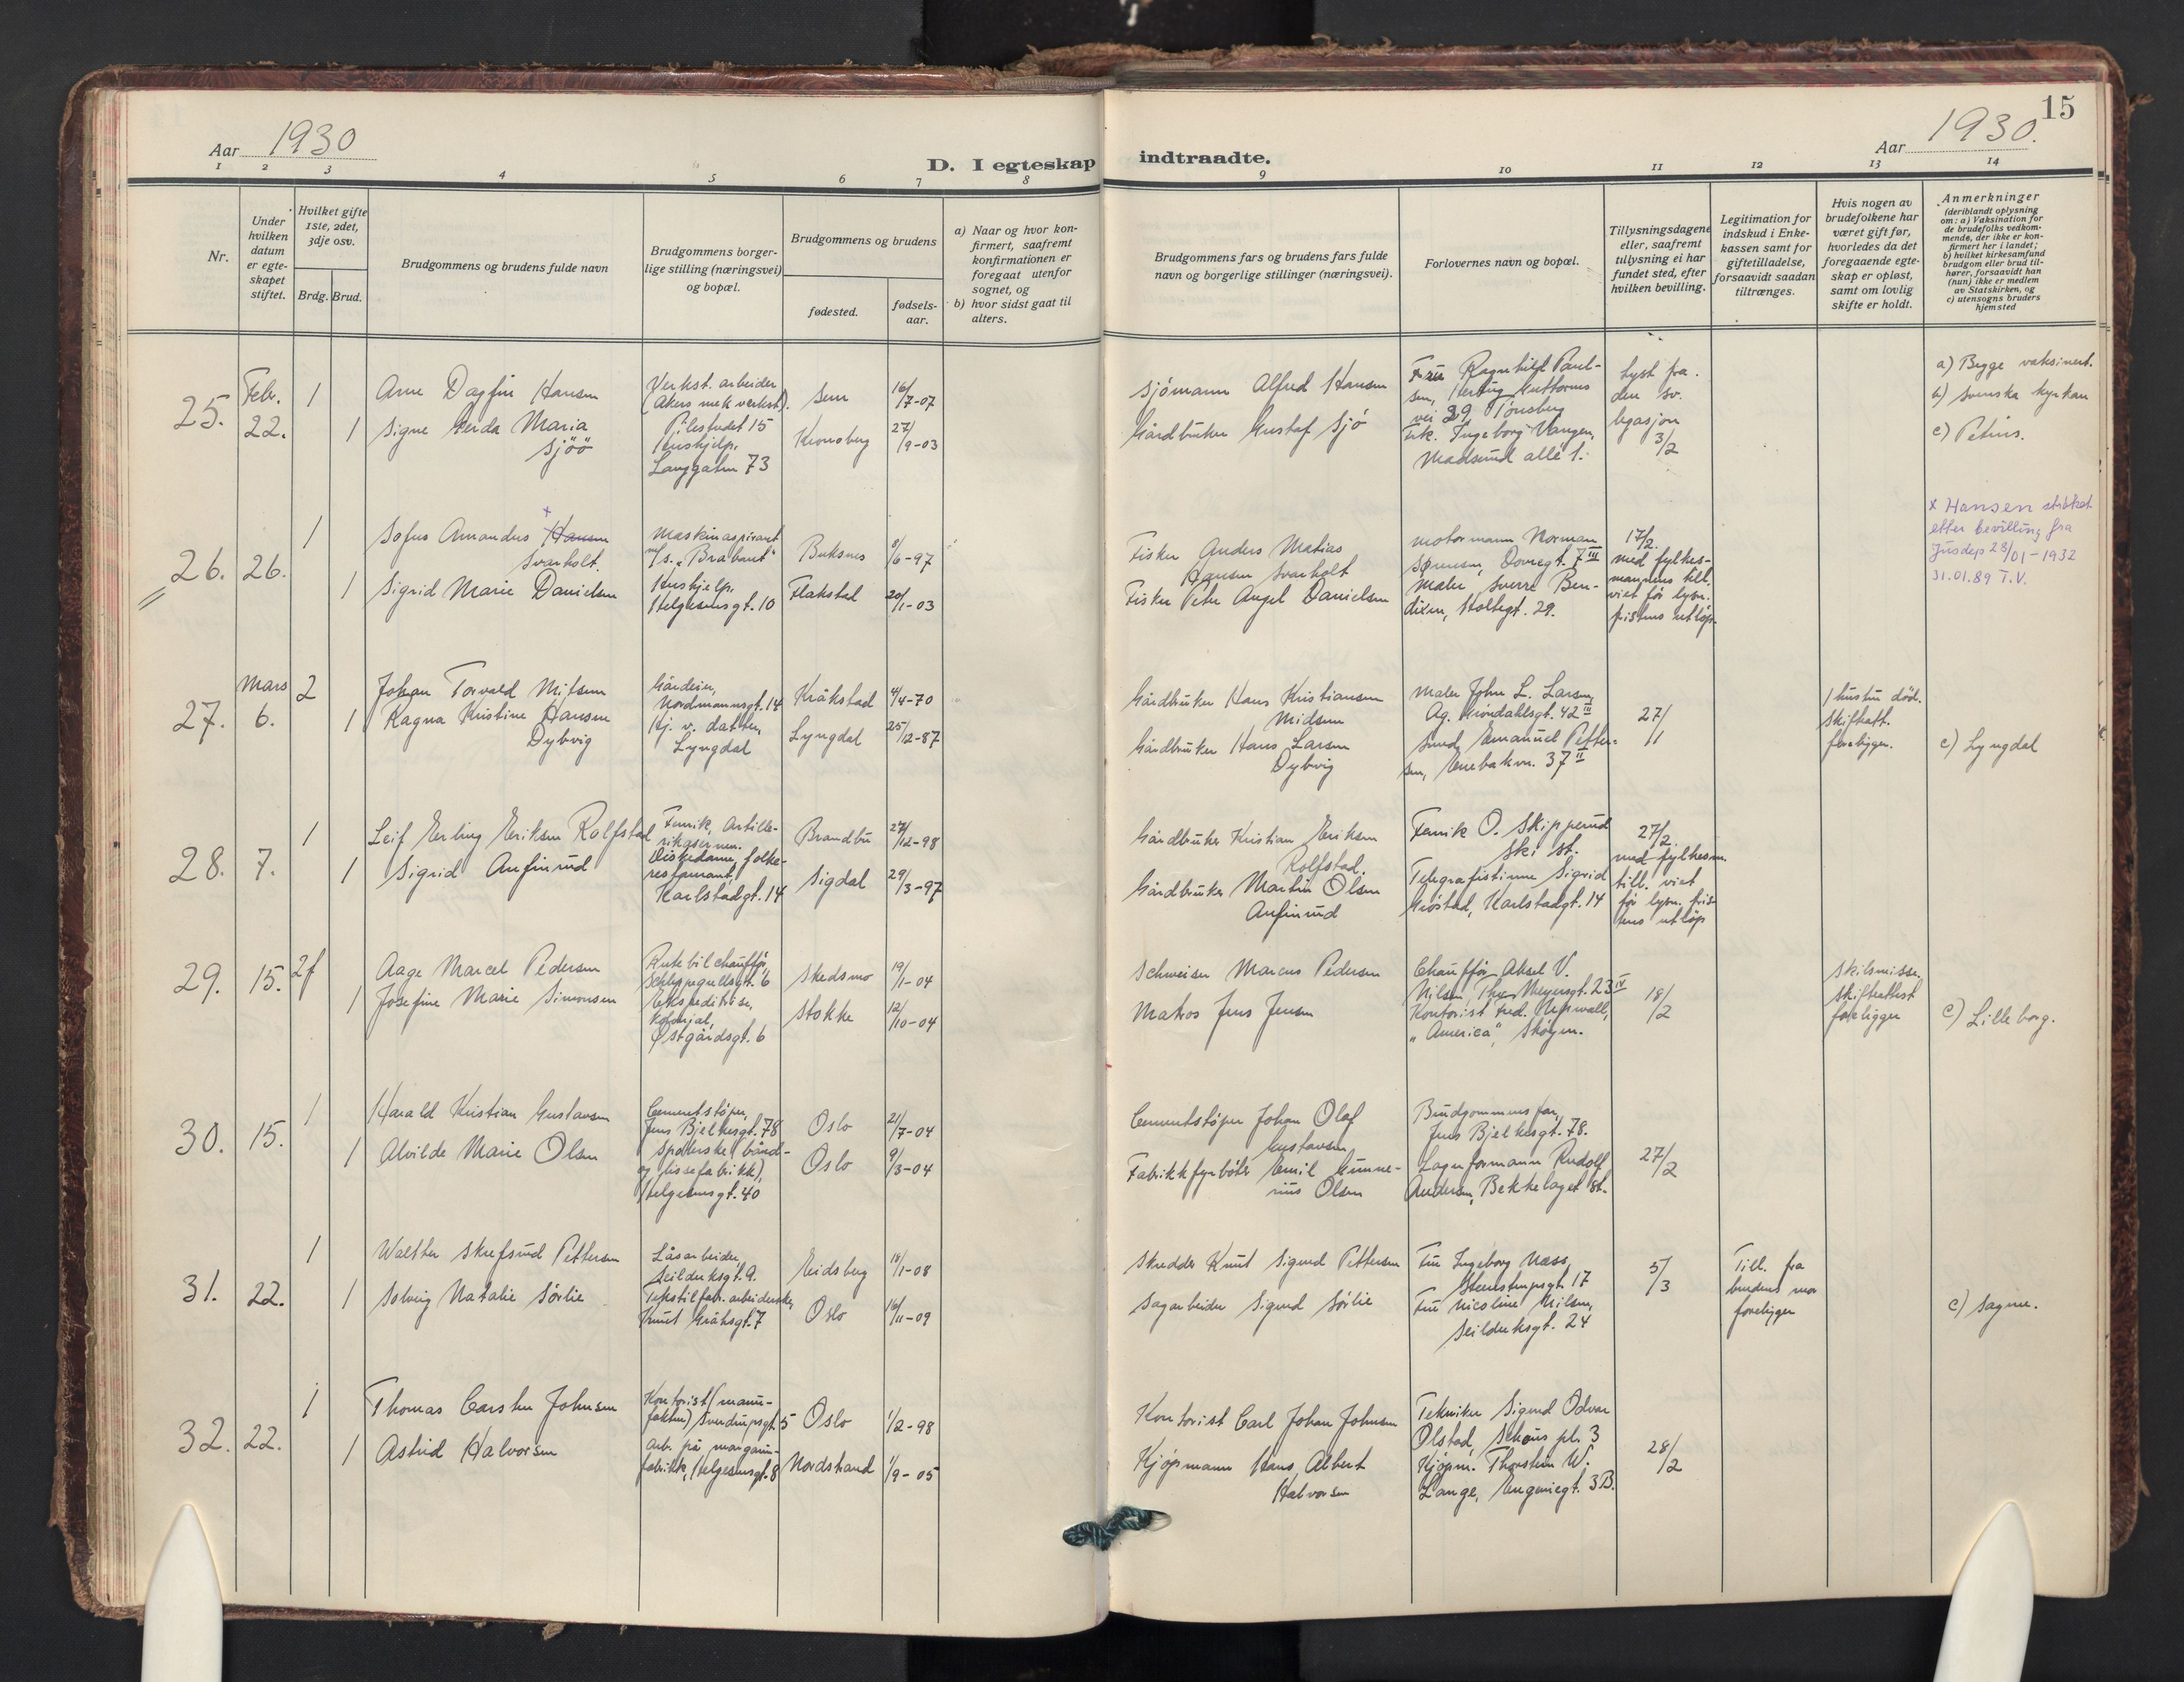 Aar 1930
D. I egteskap indtraadte.
Aar 1930.
15
1 2 3 4 5 6 7 8 9 10 11 12 13 14
Nr.
Under hvilken datum er egteskapet stiftet.
Hvilket gifte 1ste, 2det, 3dje osv.
Brdg. Brud.
Brudgommens og brudens fulde navn
Brudgommens borgerlige stilling (næringsvei) og bopæl.
Brudgommens og brudens
fødested.
fødselsaar.
a) Naar og hvor konfirmert, saafremt konfirmationen er foregaat utenfor sognet, og
b) hvor sidst gaat til alters.
Brudgommens fars og brudens fars fulde navn og borgerlige stillinger (næringsvei).
Forlovernes navn og bopæl.
Tillysningsdagene eller, saafremt tillysning ei har fundet sted, efter hvilken bevilling.
Legitimation for indskud i Enkekassen samt for giftetilladelse, forsaavidt saadan tiltrænges.
Hvis nogen av brudefolkene har været gift før, hvorledes da det foregaaende egteskap er opløst, samt om lovlig skifte er holdt.
Anmerkninger
(deriblandt oplysning om: a) Vaksination for de brudefolks vedkommende, der ikke er konfirmert her i landet; b) hvilket kirkesamfund brudgom eller brud tilhører, forsaavidt han (hun) ikke er medlem av Statskirken, og c) utensogns bruders hjemsted
25.
Febr. 22.
1
Arne Dagfin Hansen
Verkst. arbeider
(Akers mek verkst).
Pilestredet 15
Sem
16/7-07
1
Signe Gerda Maria
Sjöö
Hushjelp,
Langgaten 73
Kronoberg
27/9-03
Sjömann Alfred Hansen
Gårdbruker Gustaf Sjö
Fru Ragnhild Paulsen, Hertug Guttorms
vei 29 Tönsberg
Frk. Ingeborg Vangen,
Madserud allé 1.
Lyst fra
den sv.
legasjon
3/2
a) Begge vaksinert.
b) Svenska kyrkan
c) Petrus.
26.
26.
1
Sofus Amandus x Hansen
Svarholt.
Maskinaspirant
M/s. "Brabant"
Buksnes
8/6-97
1
Sigrid Marie Danielsen
Hushjelp,
Helgesensgt. 10
Flakstad
20/1-03
Fisker Anders Matias
Hansen Svarholt
Fisker Peter Angel Danielsen
Motormann Norman
Sørensen, Dovregt. 7 III
Maler Sverre Bendixen, Stoltegt. 29.
17/2.
med fylkesmannens till.
viet før lysn.
fristens utløp.
x Hansen strøket
etter bevilling fra
Jusdep 28/01-1932
31.01.89 T.V.
27.
Mars 6.
2
Johan Torvald Midsem
Gårdeier,
Nordmannsgt. 14
Kråkstad
4/4-70
1
Ragna Kristine Hansen
Dybvig
Hj. v. datter,
Lyngdal
Lyngdal
25/12-87
Gårdbruker Hans Kristiansen
Midsem
Gårdbruker Hans Larsen
Dybvig
Maler John L. Larsen,
Ag. Grøndahlsgt. 42 III
Smed Emanuel Pettersen, Enebakvn. 37 II
27/11
1 hustru död.
Skifteatt.
foreligger.
c) Lyngdal
28.
7.
1
Leif Erling Eriksen Rolfstad
Fenrik, Artillerikasernen.
Brandbu
27/12-98
1
Sigrid Anfinrud
Diskedame, folkerestaurant,
Karlstadgt. 14
Sigdal
29/3-97
Gårdbruker Kristian Eriksen
Rolfstad.
Gårdbruker Martin Olsen
Anfinrud
Fenrik O. Skipperud
Ski st.
Telegrafistinne Sigrid
Grøstad, Karlstadgt. 14
27/2.
med fylkesm.
till. viet
før lysn. fristens utløp
29.
15.
2f
Aage Marcel Pedersen
Rutebilchauffør,
Schleppegrellsgt. 6
Skedsmo
19/1-04
1
Josefine Marie Simonsen
Ekspeditrise,
kolonial,
Østgårdsgt. 6
Stokke
12/10-04
Schweiser Marcus Pedersen
Matros Jens Jensen
Chauffør Aksel V.
Nilsen, Thv. Meyersgt. 23 IV
Kontorist Fred.
"America", Skøyen.
18/2
Skilsmisse,
skifteattest
foreligger
c) Lilleborg.
30.
15.
1
Harald Kristian Gustavsen
Cementstøper,
Jens Bjelkesgt. 78
Oslo
21/7-04
1
Alvilde Marie Olsen
Spolerske (bånd-
og lissefabrikk),
Helgesensgt. 40
Oslo
9/3-04
Cementstøper Johan Olaf
Gustavsen
Fabrikkfyrbøter Emil Gunnerius Olsen
Brudgommens far,
Jens Bjelkesgt. 78.
Lagerformann Rudolf
Andersen, Bekkelaget st.
27/2
31.
22.
1
Walther Skrefsrud Pettersen
Låsarbeider,
Seilduksgt. 9.
Eidsberg
18/1-08
1
Solveig Natalie Sörlie
Tekstilfabr. arbeiderske,
Knut Gråhsgt. 7
Oslo
16/11-09
Skredder Knut Sigurd Pettersen
Sagarbeider Sigurd Sörlie
Fru Ingeborg Næss,
Steenstrupsgt. 17
Fru Nicoline Nilsen,
Seilduksgt. 24
5/3
Till. fra
brudens mor
foreligger
c) Sagene.
32.
22.
1
Thomas Carsten Johnsen
Kontorist (manufaktur) Sverdrupsgt. 5
Oslo
1/2-98
1
Astrid Halvorsen
Arb. på margarinfabrikk, Helgesensgt. 8
Nordstrand
1/9-05
Kontorist Carl Johan Johnsen
Kjøpmann Hans Albert
Halvorsen
Tekniker Sigurd Odvar
Olstad, Schous pl. 3
Kjøpm. Thorstein W.
Lange, Eugeniegt. 3B.
28/2